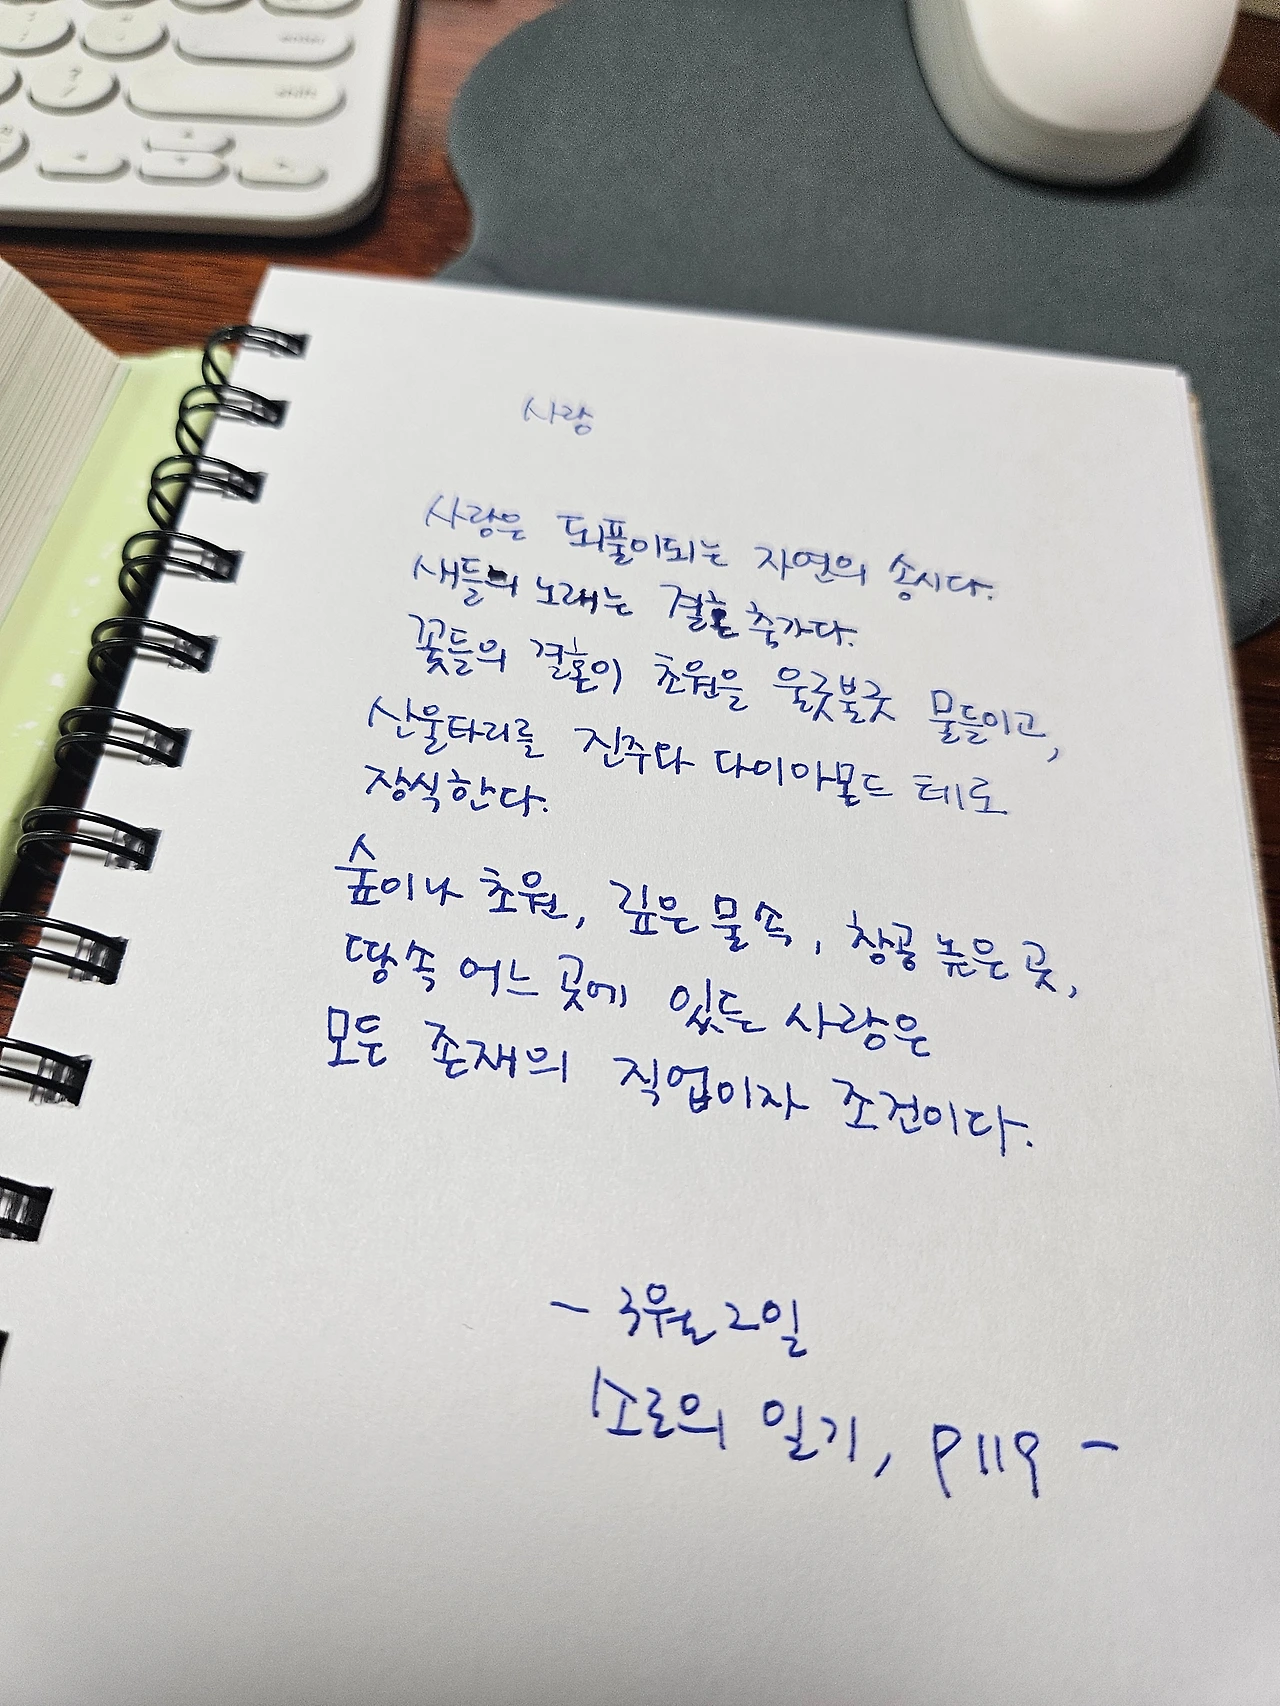 사랑
사랑은 되풀이되는 자연의 송시다.
새들의 노래는 결혼 축가다.
꽃들의 결혼이 초원을 울긋불긋 물들이고,
산울타리를 진주와 다이아몬드 테로
장식한다.
숲이나 초원, 깊은 물 속, 창공 높은 곳,
땅속 어느 곳에 있든 사랑은
모든 존재의 직업이자 조건이다.
- 3월 2일
소로의 일기, P119 -